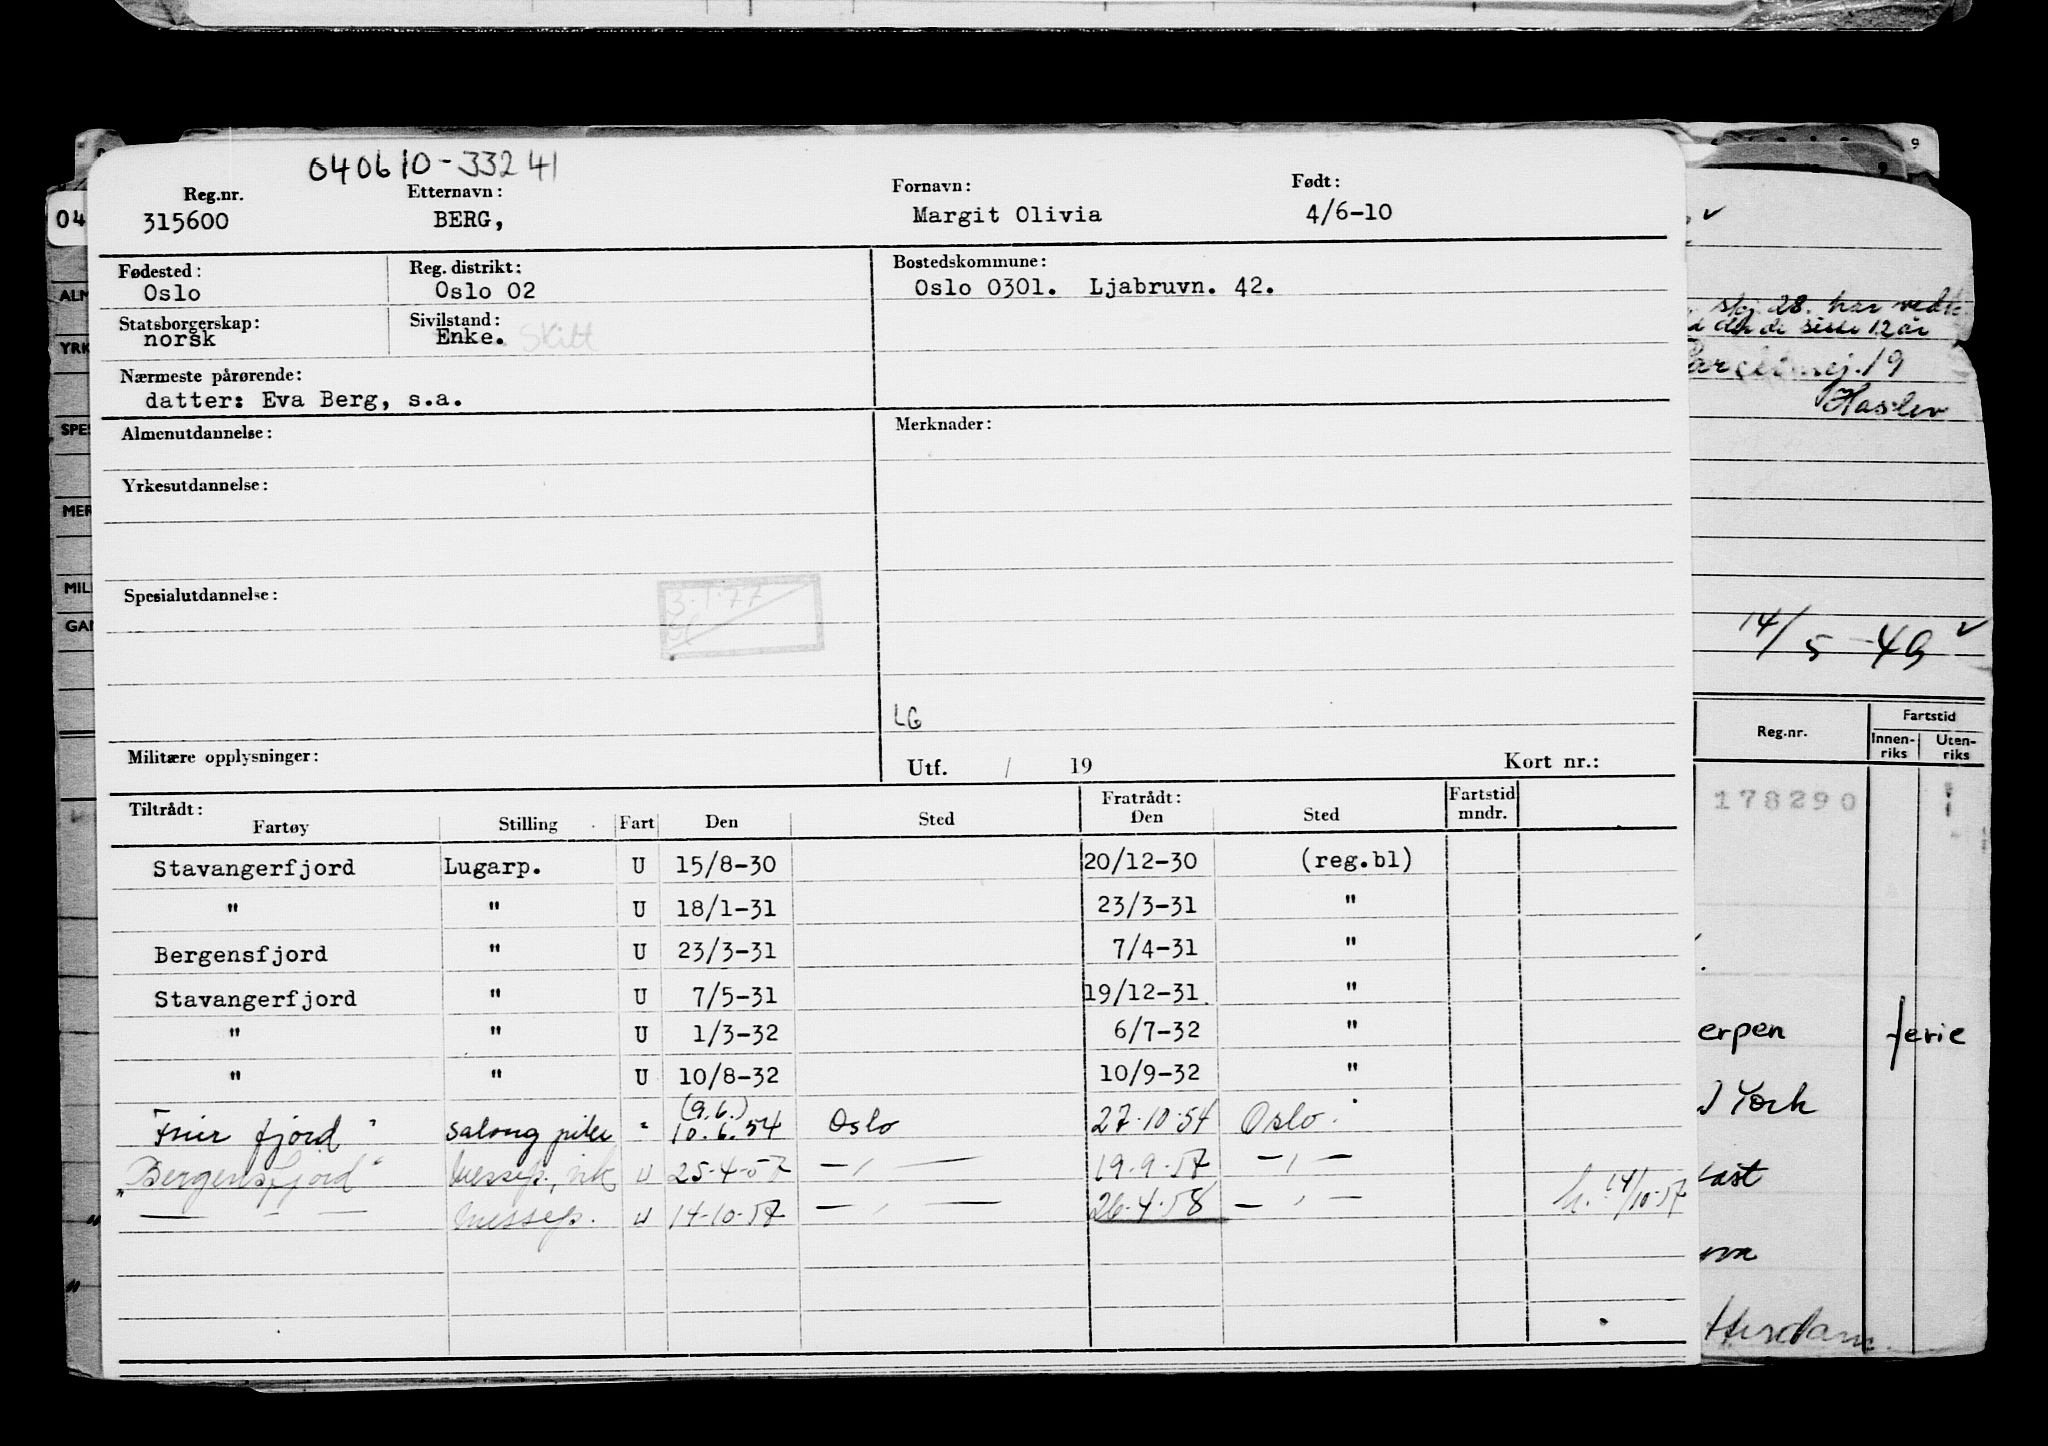 040610-33241
Reg.nr. Etternavn: Fornavn: Født:
315600 BERG, Margit Olivia 4/6-10
Fødested: Reg. distrikt: Bostedskommune:
Oslo Oslo 02 Oslo 0301. Ljabruvn. 42.
Statsborgerskap: Sivilstand:
norsk Enke. Skilt
Nærmeste pårørende:
datter: Eva Berg, s.a.
Almenutdannelse: Merknader:
Yrkesutdannelse:
Spesialutdannelse:
3.1.77
LG
Militære opplysninger: Utf. / 19 Kort nr.:
Tiltrådt: Fratrådt: Fartstid
Fartøy Stilling Fart Den Sted Den Sted mndr.
Stavangerfjord Lugarp. U 15/8-30 20/12-30 (reg.bl)
" " U 18/1-31 23/3-31 "
Bergensfjord " U 23/3-31 7/4-31 "
Stavangerfjord " U 7/5-31 19/12-31 "
" " U 1/3-32 6/7-32 "
" " U 10/8-32 10/9-32 "
(9.6.)
fjord" salong " 10.6.54 Oslo 27.10.54 Oslo.
"Bergensfjord" messep., U 25-4-57 — " — 19.9.57 — " —
— " — messep. U 14-10-57 — " — 26.4.58 — " — 14/10-57
04
ALM
YRK
SPES
MER
MILI
GAN
9
skj. 28. har
de siste 12 år
19
Haslev
14/5-49
Reg.nr. Fartstid
Innen-riks Uten-riks
178290
erpen ferie
York